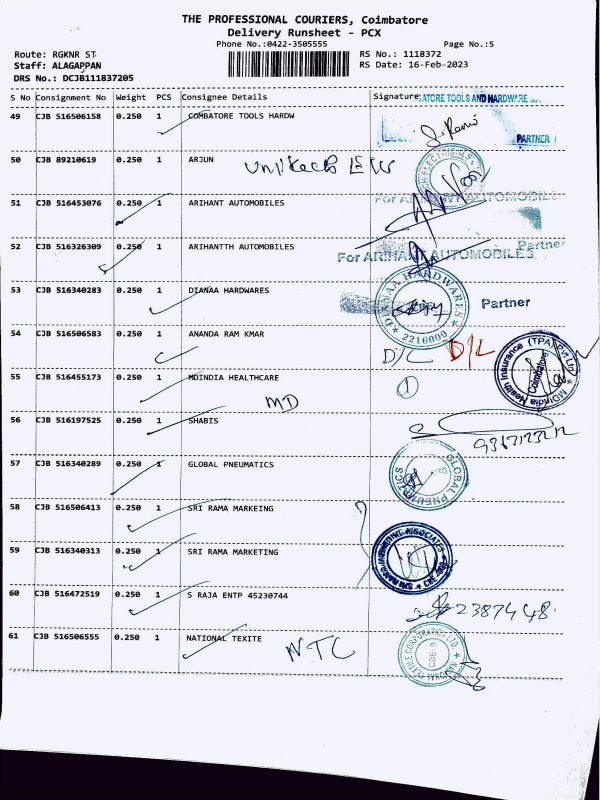 THE PROFESSIONAL COURIERS, Coimbatore
Delivery Runsheet - PCX
Phone No.:0422-3505555 Page No.:5
Route: RGKNR ST RS No.: 1118372
Staff: ALAGAPPAN RS Date: 16-Feb-2023
DRS No.: DCJB111837205
S No Consignment No Weight PCS Consignee Details Signature
ATORE TOOLS AND HARDWARE
49 CJB 516506158 0.250 1 COMBATORE TOOLS HARDW
PARTNER
50 CJB 89210619 0.250 1 ARJUN
51 CJB 516453076 0.250 1 ARIHANT AUTOMOBILES
52 CJB 516326309 0.250 1 ARIHANTTH AUTOMOBILES Partner
For ARIHANT AUTOMOBILES
53 CJB 516340283 0.250 1 DIANAA HARDWARES
HARDWARES Partner
2216000
54 CJB 516506583 0.250 1 ANANDA RAM KMAR
D/L D/L
MDIndia Health Insurance (TPA) Pvt Ltd
Coimbatore
55 CJB 516455173 0.250 1 MDINDIA HEALTHCARE
MD 1
56 CJB 516197525 0.250 1 SHABIS
57 CJB 516340289 0.250 1 GLOBAL PNEUMATICS
GLOBAL PNEUMATICS
58 CJB 516506413 0.250 1 SRI RAMA MARKEING
59 CJB 516340313 0.250 1 SRI RAMA MARKETING
60 CJB 516472519 0.250 1 S RAJA ENTP 45230744
2387448
61 CJB 516506555 0.250 1 NATIONAL TEXITE
NTC
NATIONAL TEXTILE CORPORATION LTD.
CBE-9